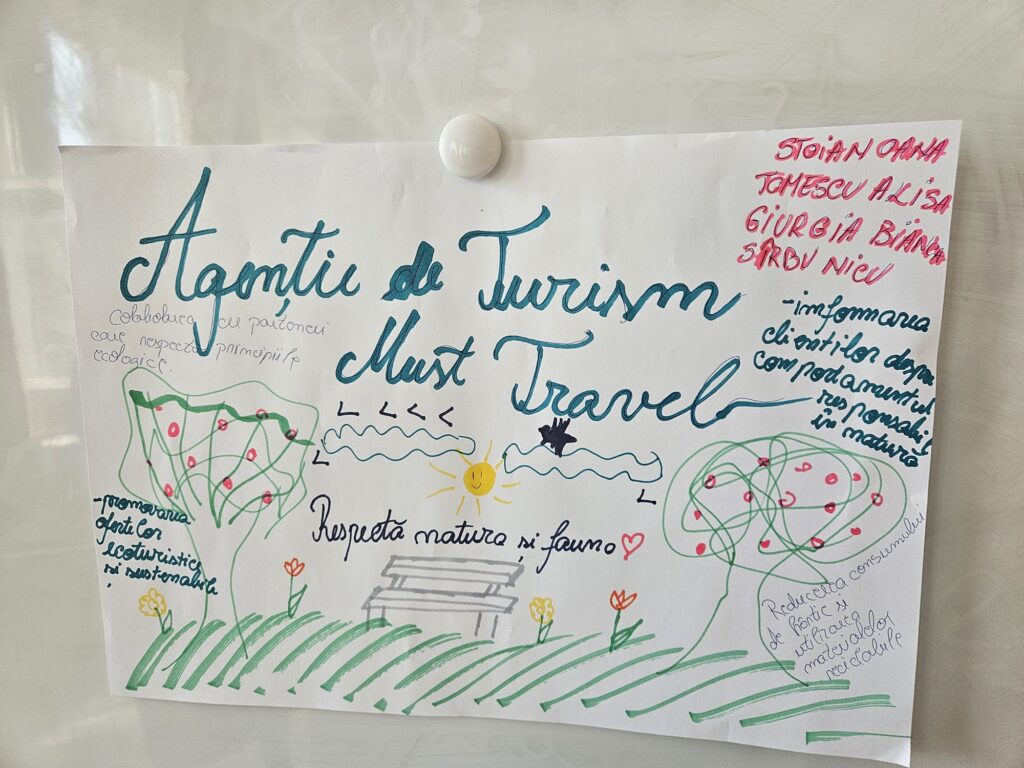 STOIAN OANA
TOMESCU ALISA
GIURGIA BIANCA
SÎRBU NICU
Agenție de Turism
Must Travel
Colaborarea cu parteneri
care respectă principiile
ecologice.
-informarea
clienților despre
comportamentul
responsabil
în natură
Respectă natura și fauna
-promovarea
ofertelor
ecoturistice
si sustenabile
Reducerea consumului
de hârtie si
utilizarea
materialelor
reciclabile